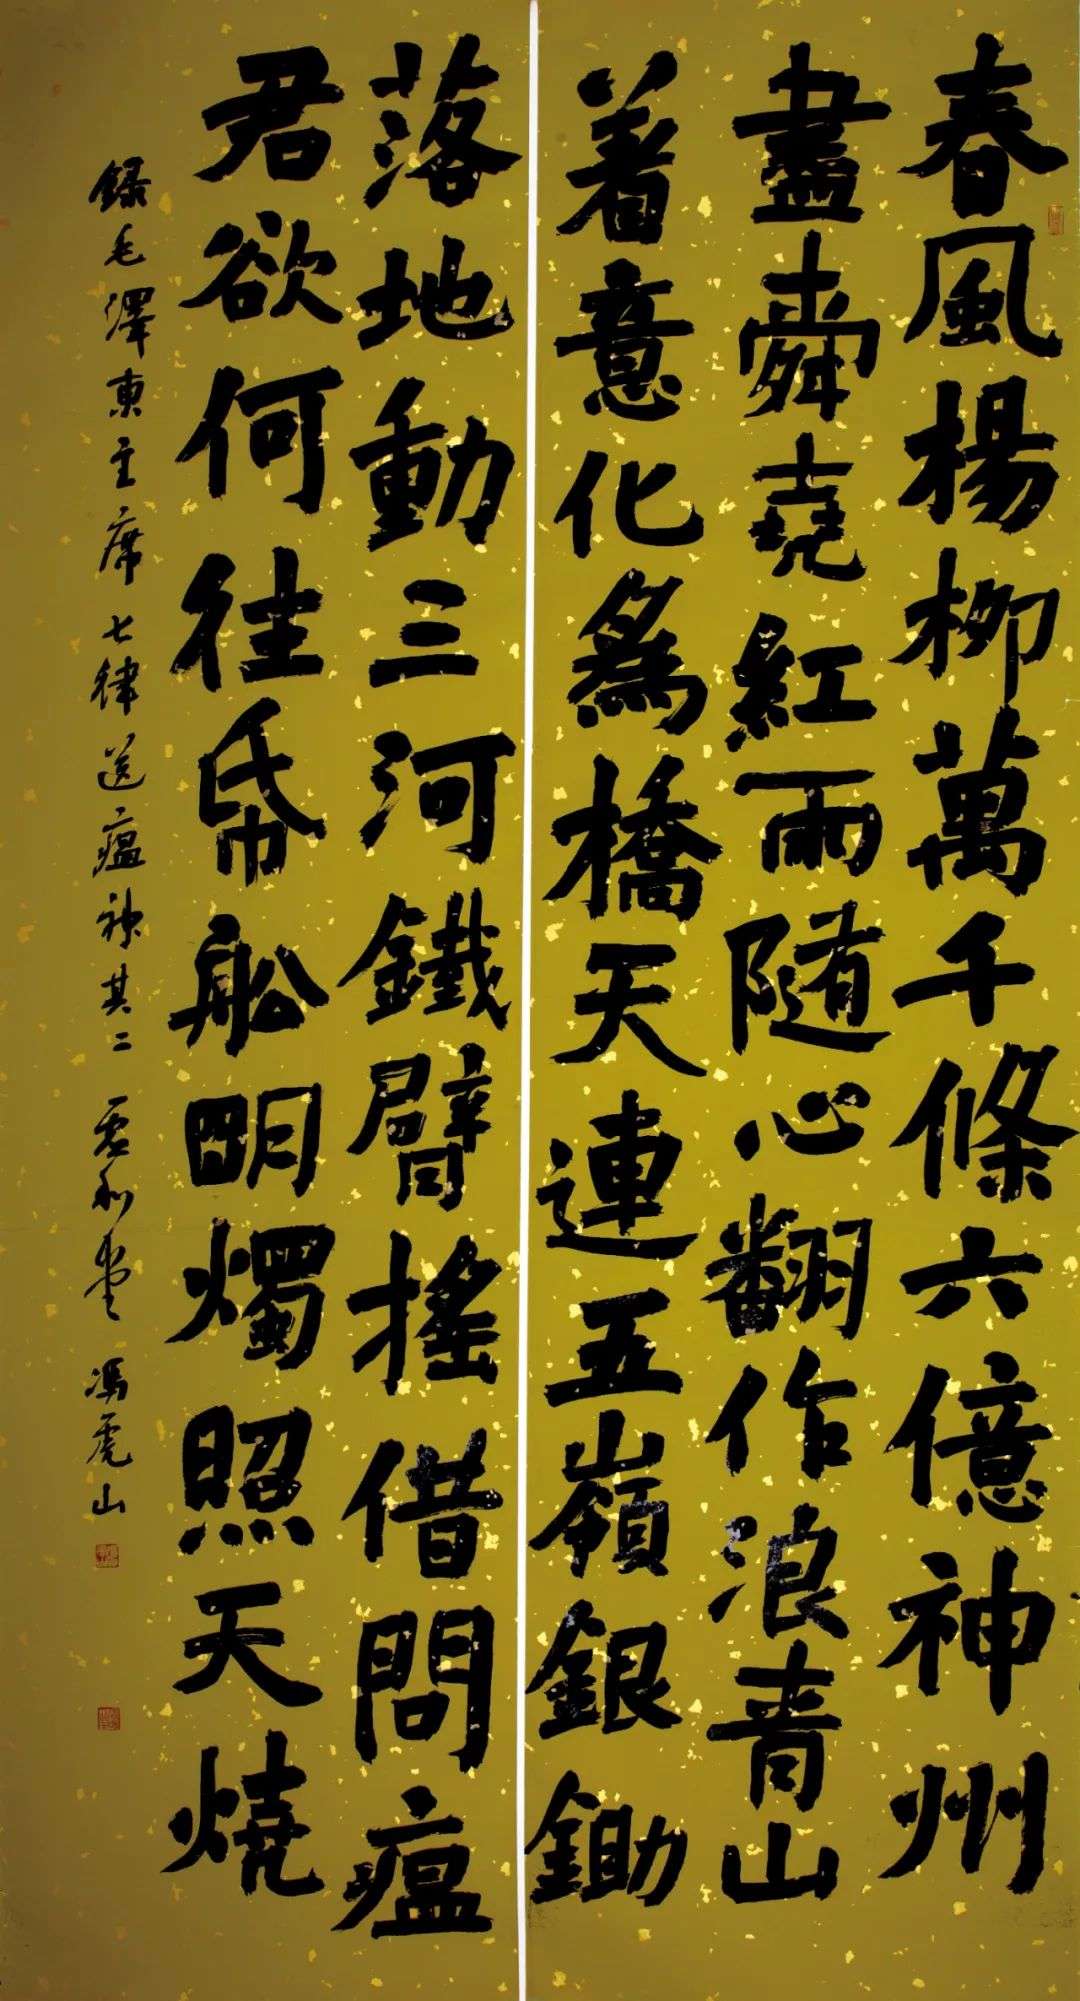 春風楊柳萬千條六億神州
盡舜堯紅雨隨心翻作浪青山
着意化爲橋天連五嶺銀鋤
落地動三河鐵臂搖借問瘟
君欲何往帋舩明燭照天燒
録毛澤東主席七律送瘟神其二 和堂 馮虎山